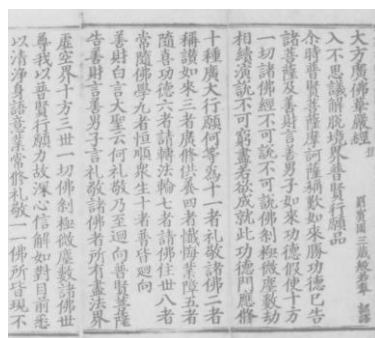 大方廣佛華嚴經
罽賓國三藏般若奉 詔譯
入不思議解脫境界普賢行願品
尒時普賢菩薩摩訶薩稱歎如來勝功德已告
諸菩薩及善財言善男子如來功德假使十方
一切諸佛經不可說不可說佛剎極微塵數劫
相續演說不可窮盡若欲成就此功德門應修
十種廣大行願何等為十一者礼敬諸佛二者
稱讚如來三者廣修供養四者懺悔業障五者
隨喜功德六者請轉法輪七者請佛住世八者
常隨佛學九者恒順衆生十者普皆迴向
善財白言大聖云何礼敬乃至迴向普賢菩薩
告善財言善男子言礼敬諸佛者所有盡法界
虛空界十方三世一切佛剎極微塵數諸佛世
尊我以普賢行願力故深心信解如對目前悉
以清淨身語意業常修礼敬一一佛所皆現不